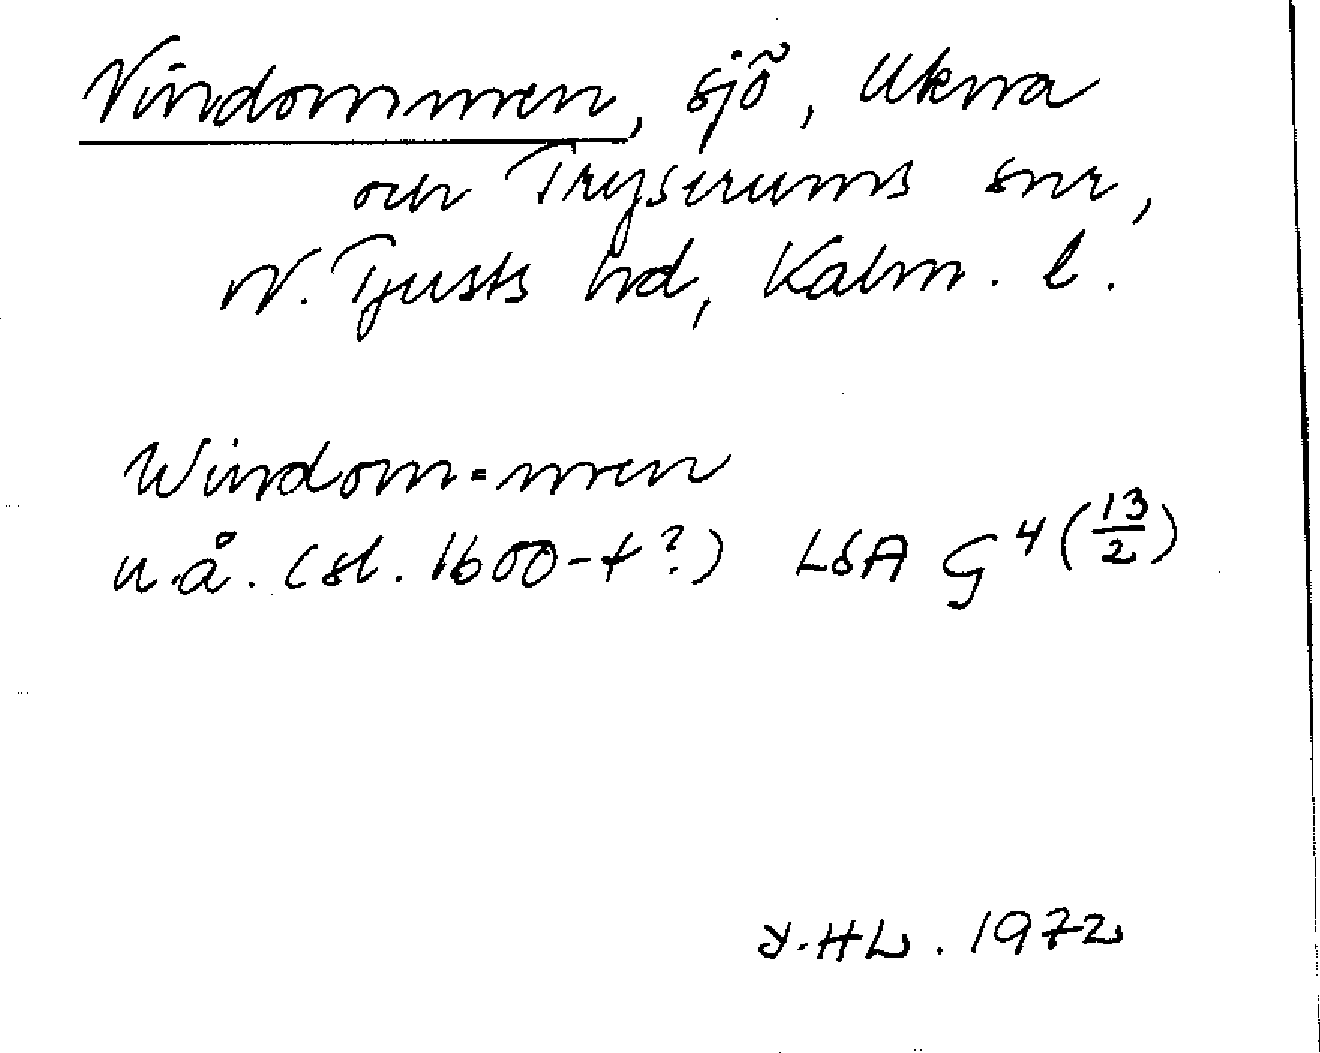 Vindommen, sjö, Ukna
och Tryserums snr,
N. Tjusts hd, Kalm. l.
Windom=men
u.å. (sl. 1600-t?) LSA G⁴ (13/2)
HL. 1972